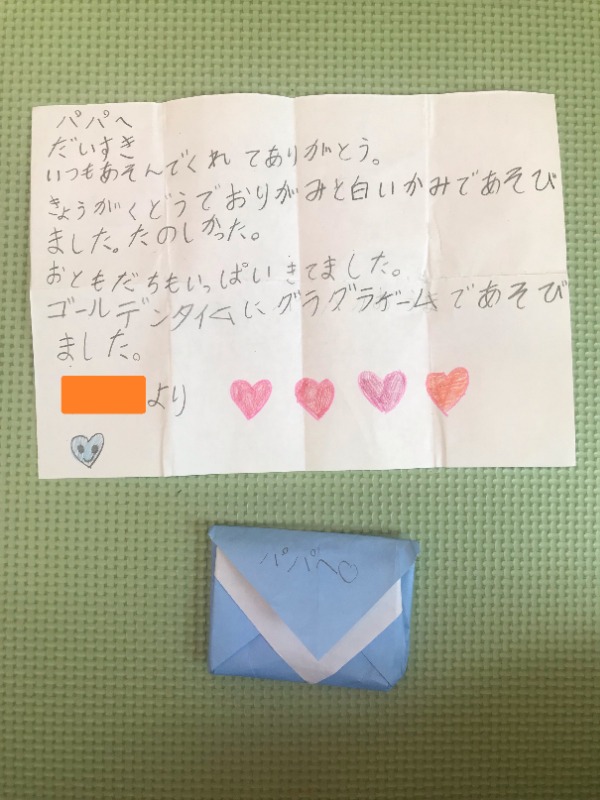 パパへ
だいすき
いつもあそんでくれてありがとう。
きょうがくどうでおりがみと白いかみであそび
ました。たのしかった。
おともだちもいっぱいきてました。
ゴールデンタイムにグラグラゲームであそび
ました。
より
パパへ